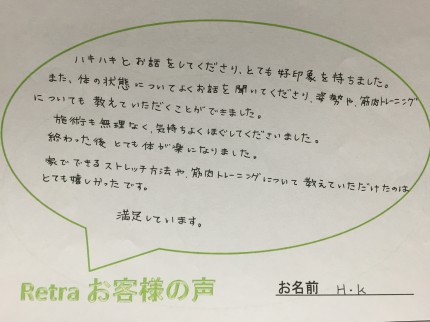 ハキハキとお話をしてくださり、とても好印象を待ちました。
また、体の状態についてよくお話を聞いてくださり、姿勢や、筋肉トレーニング
についても教えていただくことができました。
施術も無理なく、気持ちよくほぐしてくださいました。
終わった後とても体が楽になりました。
家でできるストレッチ方法や、筋肉トレーニングについて教えていただけたのは
とても嬉しかったです。
満足しています。
Retra お客様の声
お名前 H.K